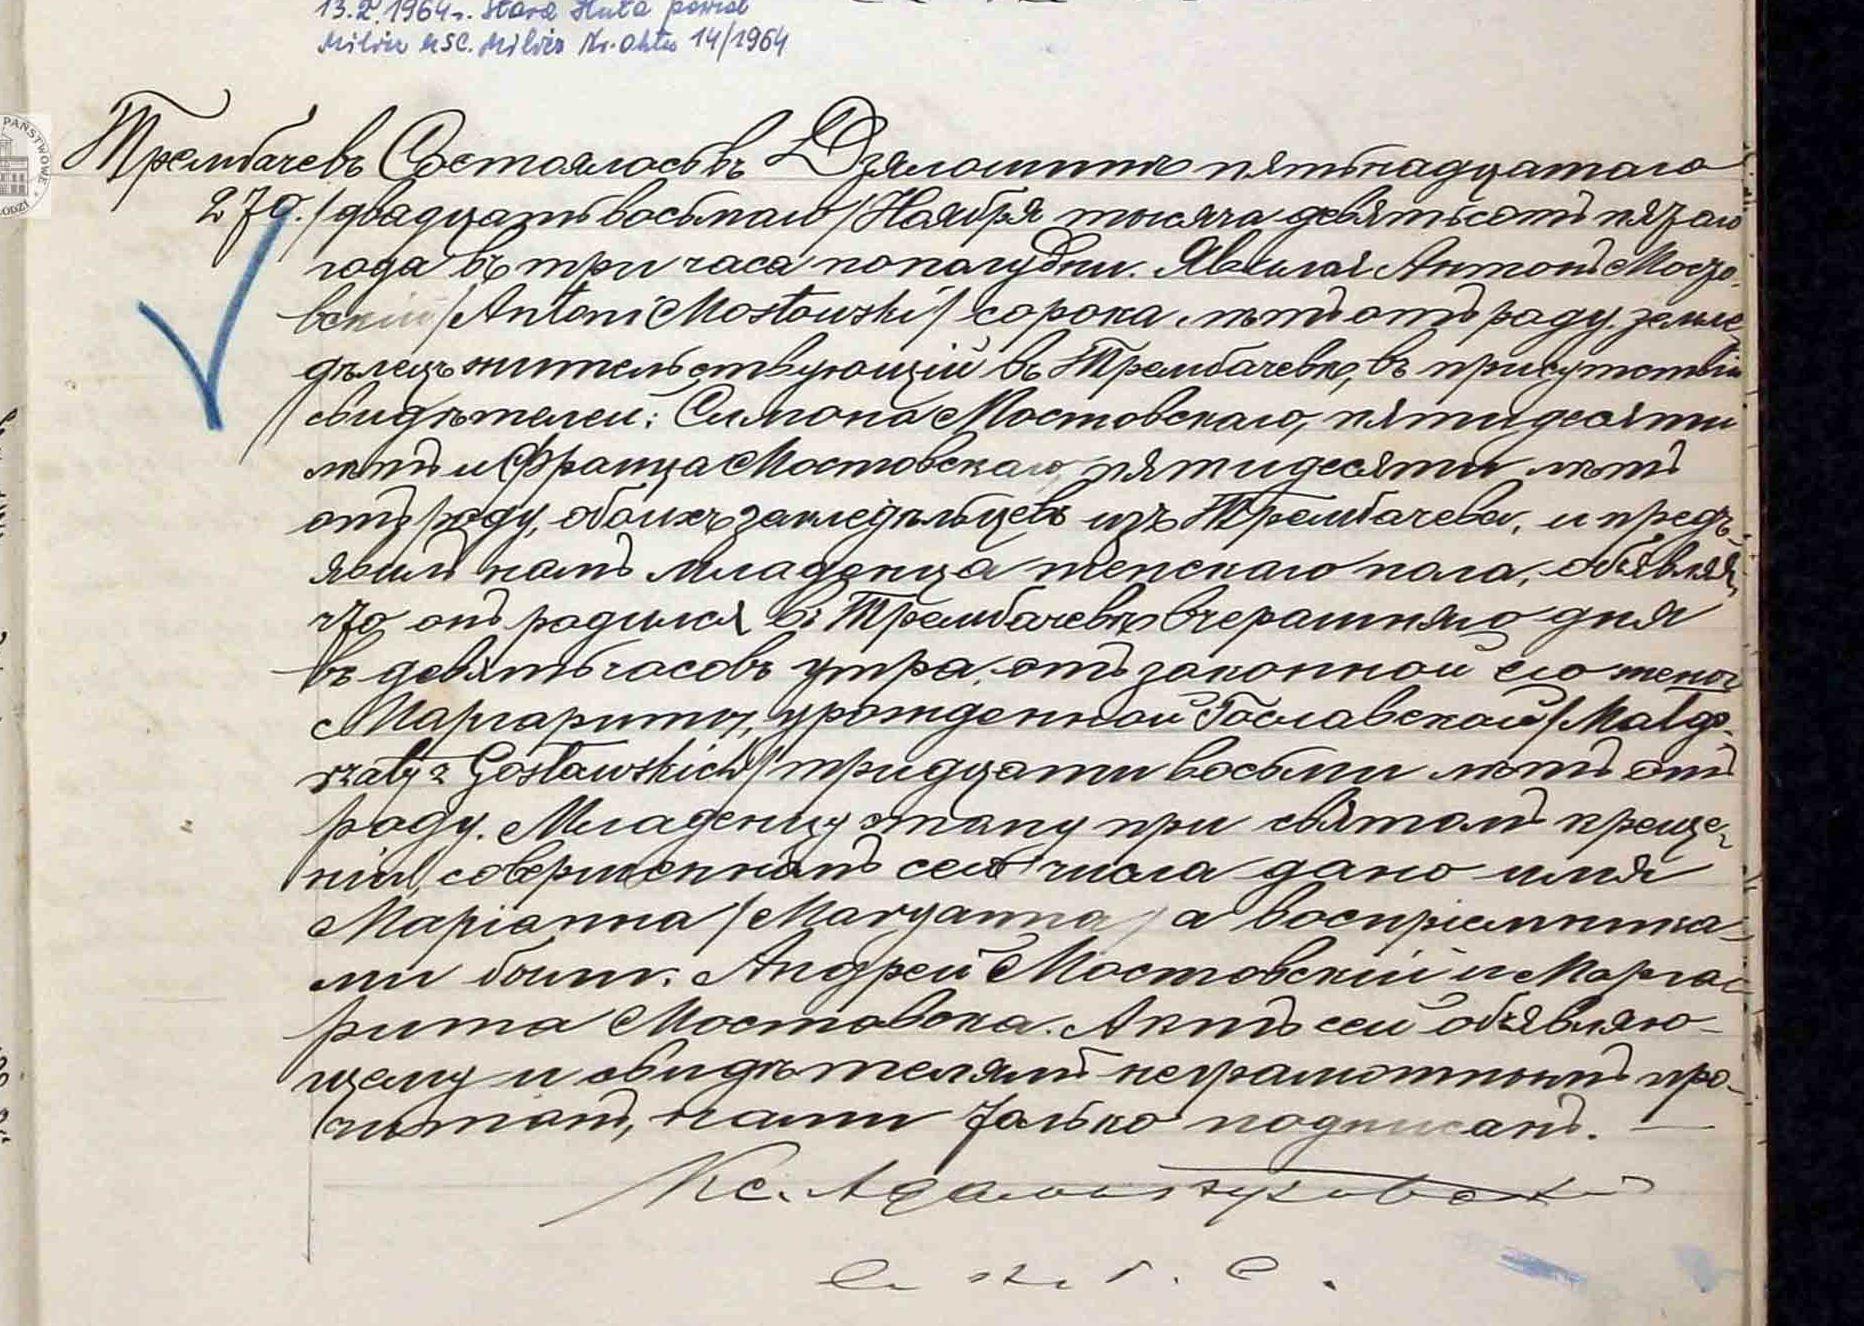 13.2.1964r. Stara Huta powiat
Milicz USC. Milicz Nr. aktu 14/1964
PAŃSTWOWE
Трембачевъ Состоялось въ Дзялошинѣ пятьнадцатаго
270. /двадцать восьмаго/ Ноября тысяча девятьсотъ пятаго
года въ три часа пополудни. Явился Антонъ Мосто-
вскій /Antoni Mostowski/ сорока лѣтъ отъ роду, земле
дѣлецъ жительствующій въ Трембачевѣ, въ присутствіи
свидѣтелей: Симона Мостовскаго, пятидесяти
лѣтъ и Франца Мостовскаго, пятидесяти лѣтъ
отъ роду, обоихъ земледѣльцевъ изъ Трембачева, и предъ-
явилъ намъ младенца женскаго пола, объявляя,
что онъ родился въ Трембачевѣ вчерашняго дня
въ девять часовъ утра, отъ законной его жены
Маргариты, урожденной Гославской /Małgo-
rzaty z Gosławskich/ тридцати восьми лѣтъ отъ
роду. Младенцу этому при святомъ креще-
ніи, совершенномъ сего числа дано имя
Маріанна /Maryanna/ а воспріемника-
ми были: Андрей Мостовскій и Марга-
рита Мостовска. Актъ сей объявляю-
щему и свидѣтелямъ неграмотнымъ про-
читанъ, нами только подписанъ.
Кс.